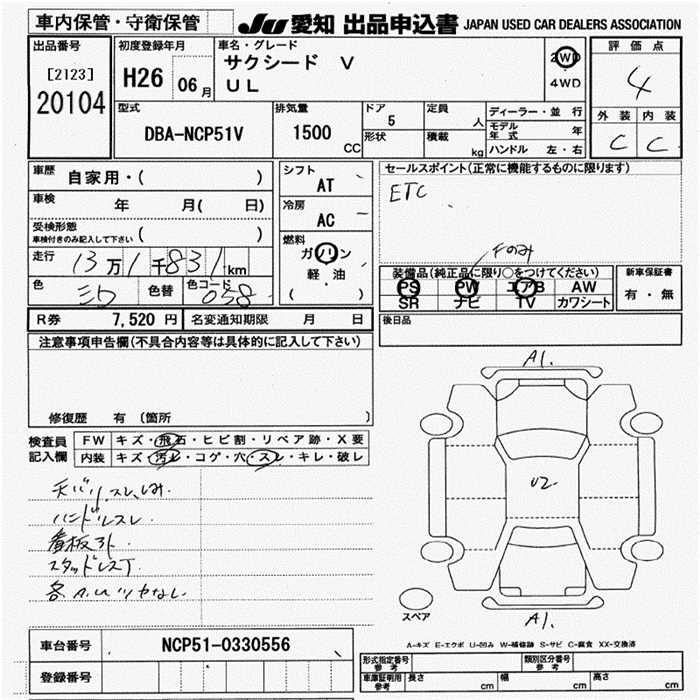 車内保管・守衛保管
JU 愛知 出品申込書 JAPAN USED CAR DEALERS ASSOCIATION
出品番号
[2123]
20104
初度登録年月
H26 06月
車名・グレード
サクシード V
UL
2WD
4WD
評価点
4
外装 内装
C C
型式
DBA-NCP51V
排気量
1500
CC
ドア
5
形状
定員
人
積載
kg
ディーラー・並行
モデル年式 年
ハンドル 左・右
車歴 自家用・( )
車検 年 月( 日)
受検形態
車検付きのみ記入して下さい ( )
走行 13万1千831km
色 シロ 色替 色コード 058
シフト
AT
冷房
AC
燃料
ガソリン
軽油
( )
セールスポイント(正常に機能するものに限ります)
ETC
Fのみ
装備品(純正品に限り○をつけてください)
PS PW エアB AW
SR ナビ TV カワシート
新車保証書
有・無
R券 7,520円 名変通知期限 月 日
後日品
注意事項申告欄(不具合内容等は具体的に記入して下さい)
修復歴 有 (箇所 )
検査員
記入欄
FW キズ・飛石・ヒビ割・リペア跡・X要
内装 キズ・汚レ・コゲ・穴・スレ・キレ・破レ
天バリ スレ、しみ.
ハンドルスレ.
看板跡.
スタッドレスT
各A.Uツヤなし.
A1.
U2.
A1.
スペア
車台番号 NCP51-0330556
登録番号
A-キズ E-エクボ U-凹み W-補修跡 S-サビ C-腐食 XX-交換済
型式指定番号
参考
類別区分番号
参考
車庫証明用
参考
長さ cm 幅 cm 高さ cm